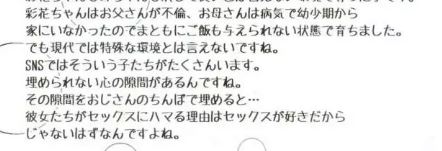 彩花ちゃんはお父さんが不倫、お母さんは病気で幼少期から
家にいなかったのでまともにご飯も与えられない状態で育ちました。
でも現代では特殊な環境とは言えないですね。
SNSではそういう子たちがたくさんいます。
埋められない心の隙間があるんですね。
その隙間をおじさんのちんぽで埋めると…
彼女たちがセックスにハマる理由はセックスが好きだから
じゃないはずなんですよね。